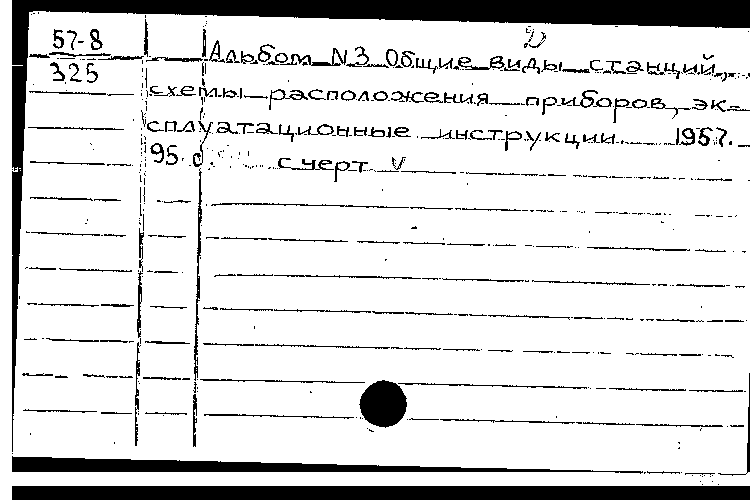 57-8
325
Д
Альбом N3 Общие виды станций,
схемы расположения приборов, эк-
сплуатационные инструкции. 1957.
95 с. с черт V